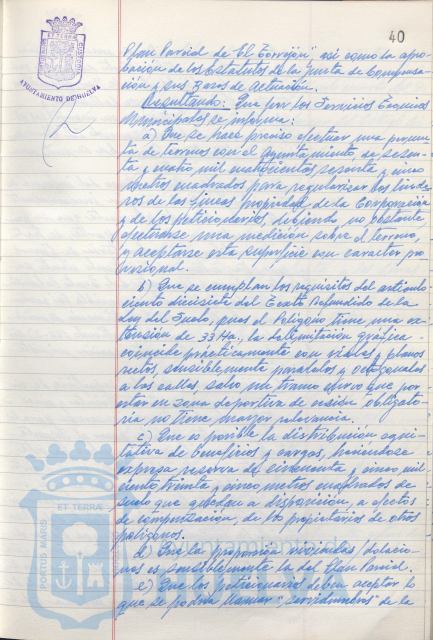 40
AYUNTAMIENTO DE HUELVA
Plan Parcial de "El Torrejón", así como la apro-
bación de los Estatutos de la Junta de Compensa-
ción y sus Bases de Actuación.
Resultando: Que por los Servicios Técnicos
Municipales se informa:
a) Que se hace preciso efectuar una permu-
ta de terrenos con el Ayuntamiento de sesen-
ta y cuatro mil cuatrocientos sesenta y cinco
metros cuadrados para regularizar los linde-
ros de las fincas propiedad de la Corporación
y de los peticionarios, debiendo no obstante
efectuarse una medición sobre el terreno,
y aceptarse esta superficie con carácter pro-
visional.
b) Que se cumplan los requisitos del artículo
ciento diecisiete del Texto Refundido de la
Ley del Suelo, pues el Polígono tiene una ex-
tensión de 33 Ha., la delimitación gráfica
coincide prácticamente con viales y planos
rectos sensiblemente paralelos y octogonales
a las calles salvo un tramo curvo que por
estar en zona deportiva de cesión obligato-
ria no tiene mayor relevancia.
c) Que es posible la distribución equi-
tativa de beneficios y cargas, haciéndose
expresa reserva de cincuenta y cinco mil
ciento treinta y cinco metros cuadrados de
suelo que quedan a disposición, a efectos
de compensación, de los propietarios de otros
polígonos.
d) Que la proporción viviendas/dotacio-
nes es sensiblemente la del Plan Parcial.
e) Que los peticionarios deben aceptar lo
que se podría llamar "servidumbres" de la
PORTUS MARIS ET TERRAE
Ayuntamiento de